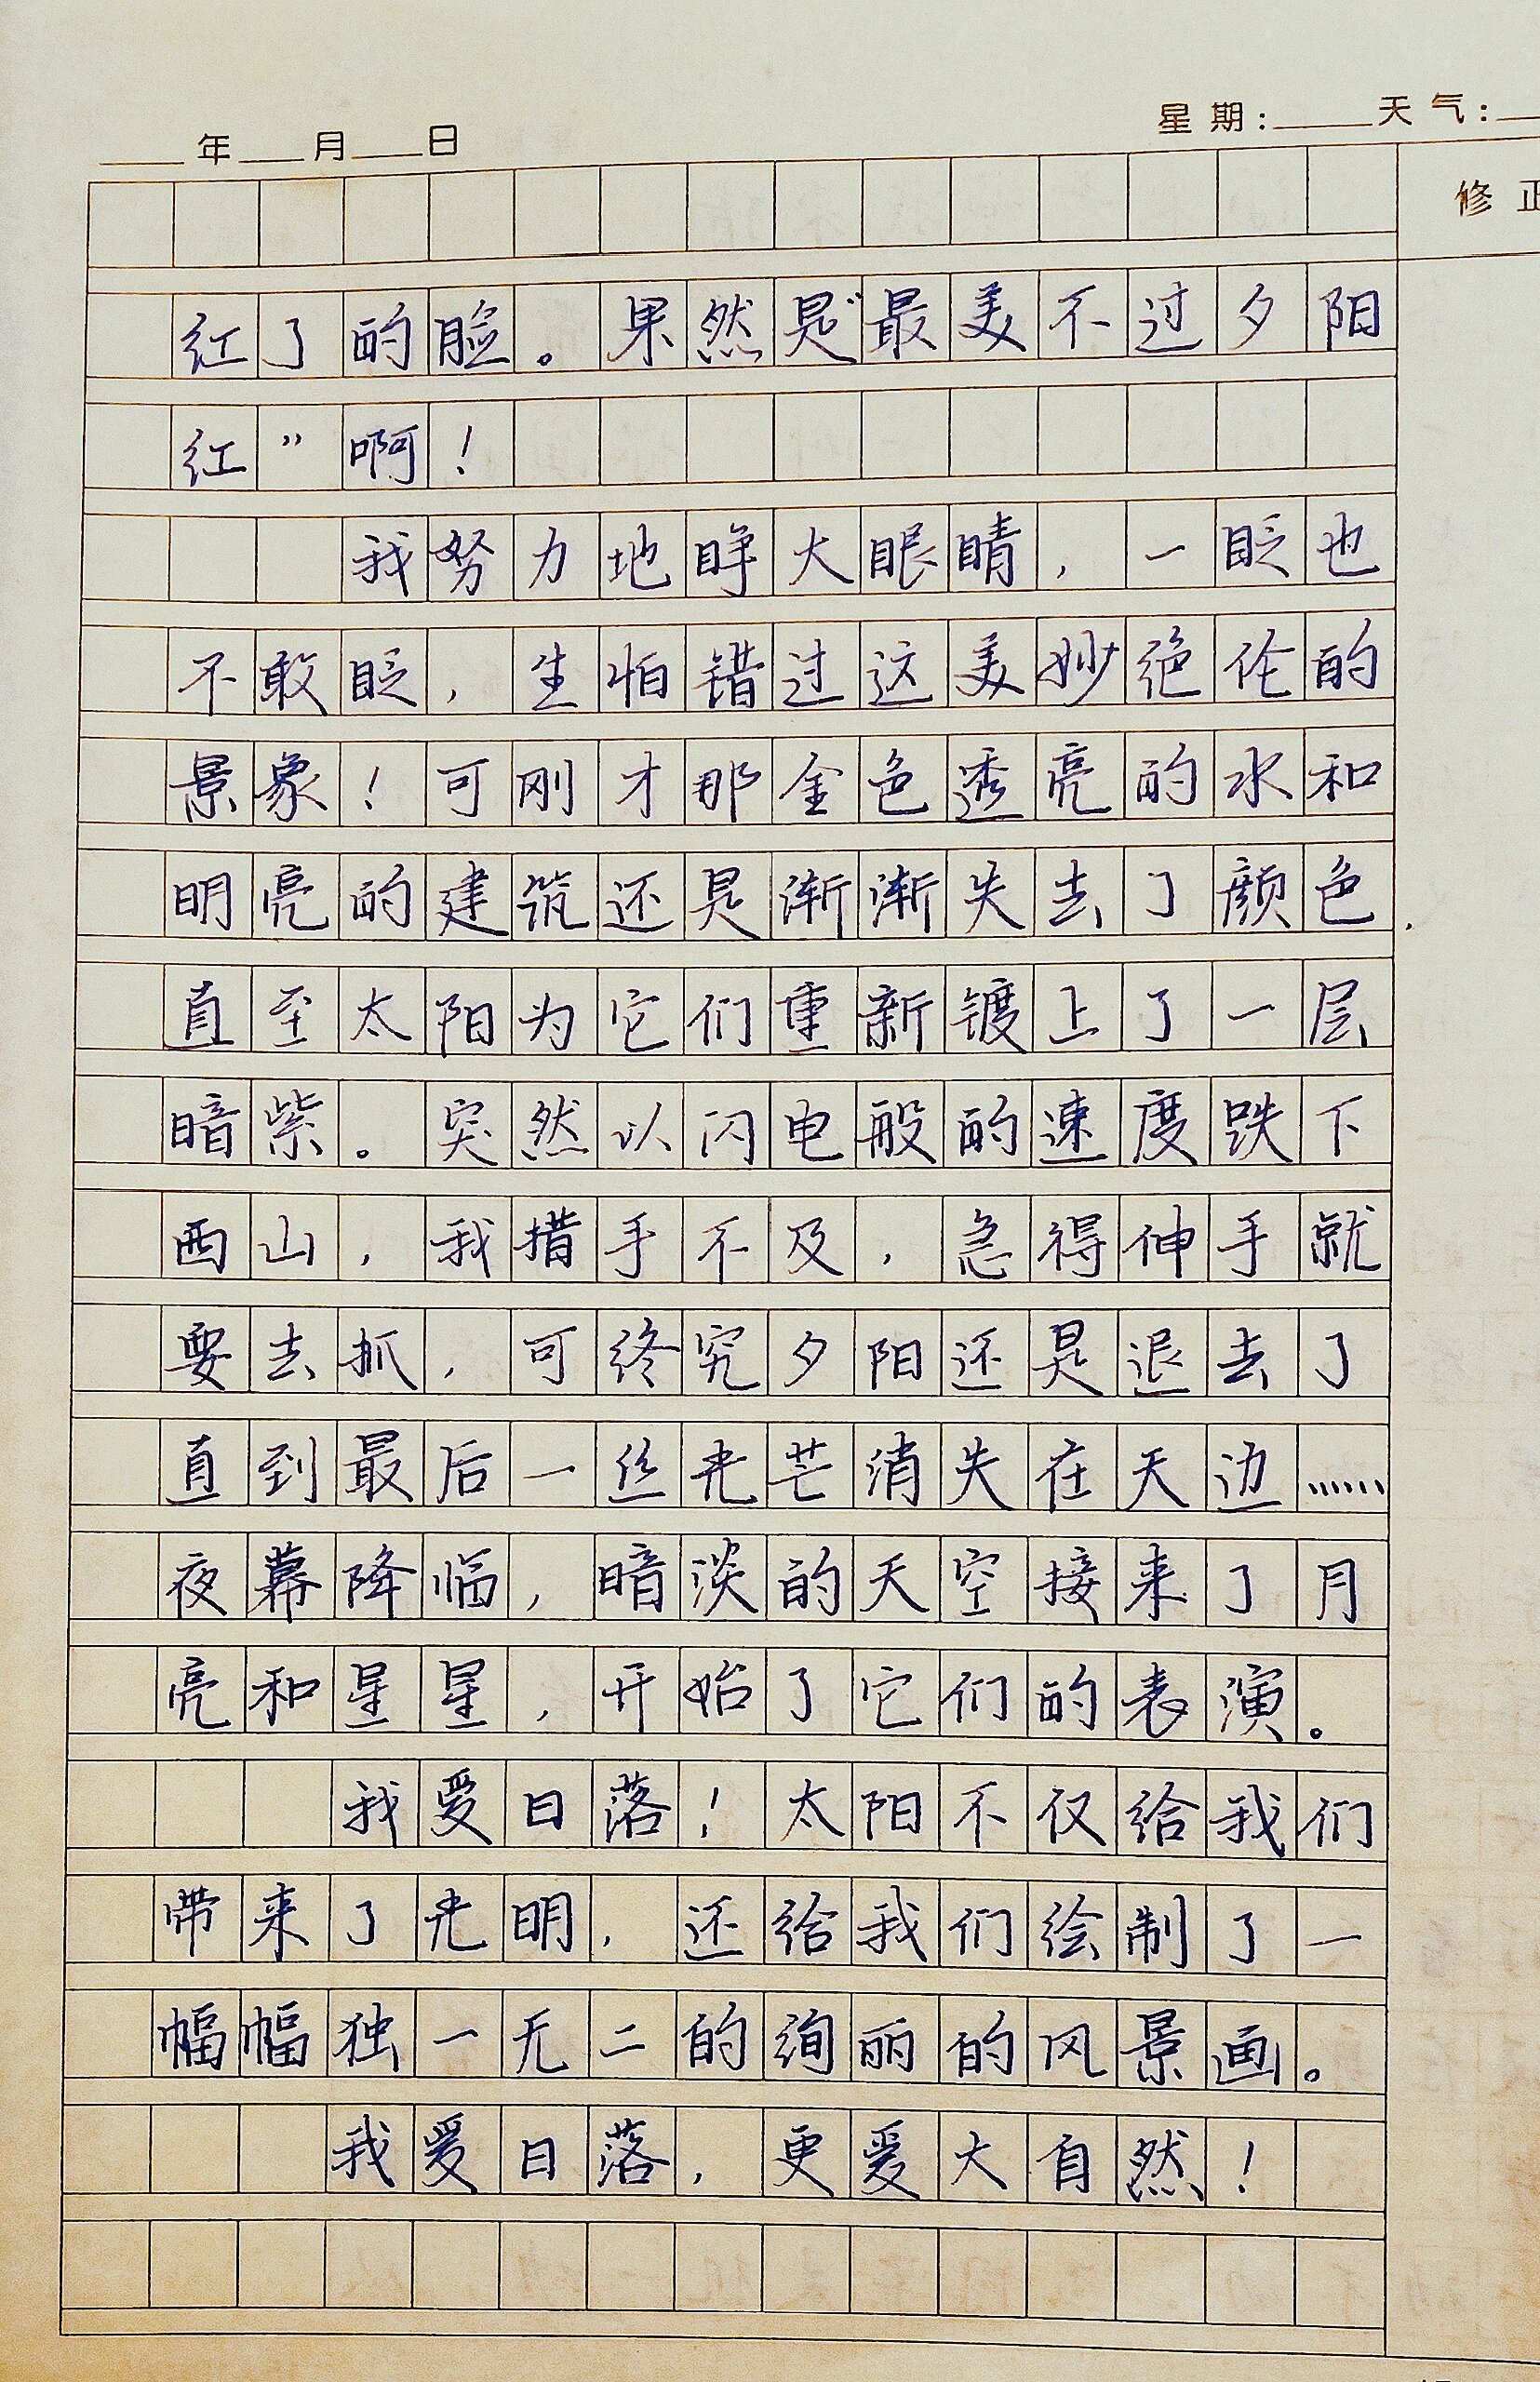 ____年___月___日 星期:____天气:
修正
红了的脸。果然是“最美不过夕阳
红”啊！
我努力地睁大眼睛，一眨也
不敢眨，生怕错过这美妙绝伦的
景象！可刚才那金色透亮的水和
明亮的建筑还是渐渐失去了颜色，
直至太阳为它们重新镀上了一层
暗紫。突然以闪电般的速度跌下
西山，我措手不及，急得伸手就
要去抓，可终究夕阳还是退去了
直到最后一丝光芒消失在天边……
夜幕降临，暗淡的天空接来了月
亮和星星，开始了它们的表演。
我爱日落！太阳不仅给我们
带来了光明，还给我们绘制了一
幅幅独一无二的绚丽的风景画。
我爱日落，更爱大自然！